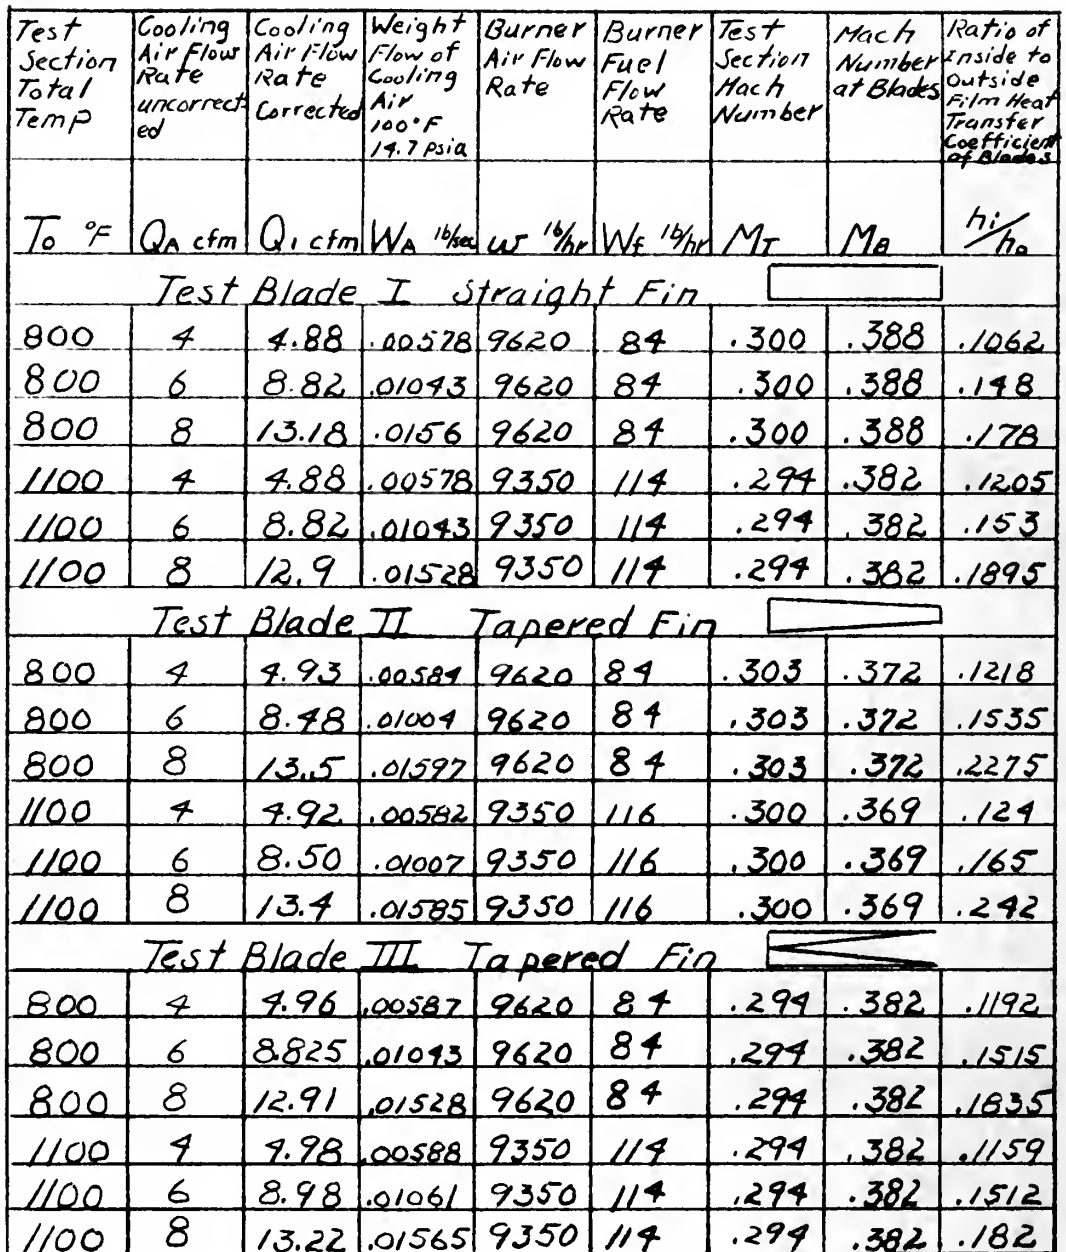 Test Section Total Temp | Cooling Air Flow Rate uncorrected | Cooling Air Flow Rate Corrected | Weight Flow of Cooling Air 100°F 14.7 psia | Burner Air Flow Rate | Burner Fuel Flow Rate | Test Section Mach Number | Mach Number at Blades | Ratio of Inside to Outside Film Heat Transfer Coefficient of Blades
To °F | QA cfm | Q1 cfm | WA lb/sec | w lb/hr | Wf lb/hr | MT | MB | hi/ho
Test Blade I Straight Fin
800 | 4 | 4.88 | .00578 | 9620 | 84 | .300 | .388 | .1062
800 | 6 | 8.82 | .01043 | 9620 | 84 | .300 | .388 | .148
800 | 8 | 13.18 | .0156 | 9620 | 84 | .300 | .388 | .178
1100 | 4 | 4.88 | .00578 | 9350 | 114 | .294 | .382 | .1205
1100 | 6 | 8.82 | .01043 | 9350 | 114 | .294 | .382 | .153
1100 | 8 | 12.9 | .01528 | 9350 | 114 | .294 | .382 | .1895
Test Blade II Tapered Fin
800 | 4 | 4.93 | .00584 | 9620 | 84 | .303 | .372 | .1218
800 | 6 | 8.48 | .01004 | 9620 | 84 | .303 | .372 | .1535
800 | 8 | 13.5 | .01597 | 9620 | 84 | .303 | .372 | .2275
1100 | 4 | 4.92 | .00582 | 9350 | 116 | .300 | .369 | .124
1100 | 6 | 8.50 | .01007 | 9350 | 116 | .300 | .369 | .165
1100 | 8 | 13.4 | .01585 | 9350 | 116 | .300 | .369 | .242
Test Blade III Tapered Fin
800 | 4 | 4.96 | .00587 | 9620 | 84 | .294 | .382 | .1192
800 | 6 | 8.825 | .01043 | 9620 | 84 | .294 | .382 | .1515
800 | 8 | 12.91 | .01528 | 9620 | 84 | .294 | .382 | .1835
1100 | 4 | 4.98 | .00588 | 9350 | 114 | .294 | .382 | .1159
1100 | 6 | 8.98 | .01061 | 9350 | 114 | .294 | .382 | .1512
1100 | 8 | 13.22 | .01565 | 9350 | 114 | .294 | .382 | .182